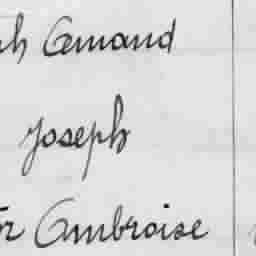 Amand
Joseph
Ambroise